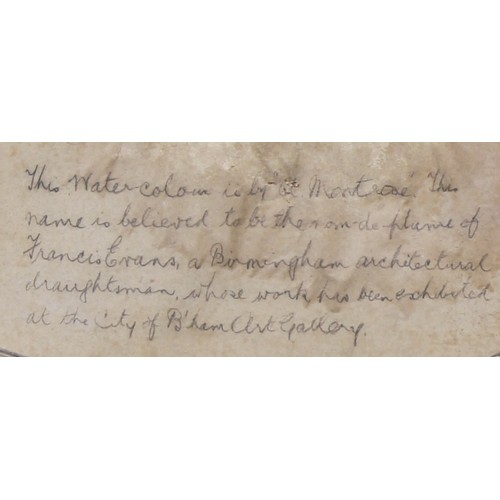 This Water-colour is by " Montrose". This
name is believed to be the nom-de-plume of
Francis Evans, a Birmingham architectural
draughtsman, whose work has been exhibited
at the City of B'ham Art Gallery.